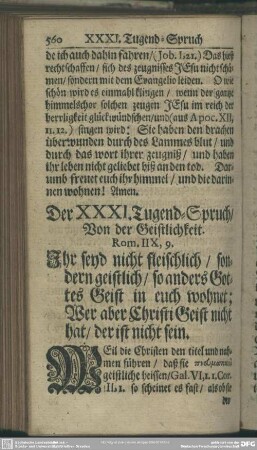 560 XXXI. Tugend-Spruch
de ich auch dahin fahren/ (Job. I. 21.) Das hieß
rechtschaffen/ sich des zeugnisses JEsu nicht schä-
men/ sondern mit dem Evangelio leiden. O wie
schön wird es einmahl klingen/ wenn der gantze
himmels chor solchen zeugen JEsu im reich der
herrligkeit glück wündschen/ und (aus Apoc. XII,
11. 12.) singen wird: Sie haben den drachen
überwunden durch des Lammes blut/ und
durch das wort ihrer zeugniß/ und haben
ihr leben nicht geliebet biß an den tod. Dar-
umb freuet euch ihr himmel/ und die darin-
nen wohnen! Amen.
Der XXXI. Tugend-Spruch/
Von der Geistlichkeit.
Rom. IIX, 9.
Ihr seyd nicht fleischlich/ son-
dern geistlich/ so anders Got-
tes Geist in euch wohnet;
Wer aber Christi Geist nicht
hat/ der ist nicht sein.
WEil die Christen den titel und nah-
men führen/ daß sie
geistliche heissen/ Gal. VI, 1. 1. Cor.
II, 1. so scheinet es fast/ als ob se
der